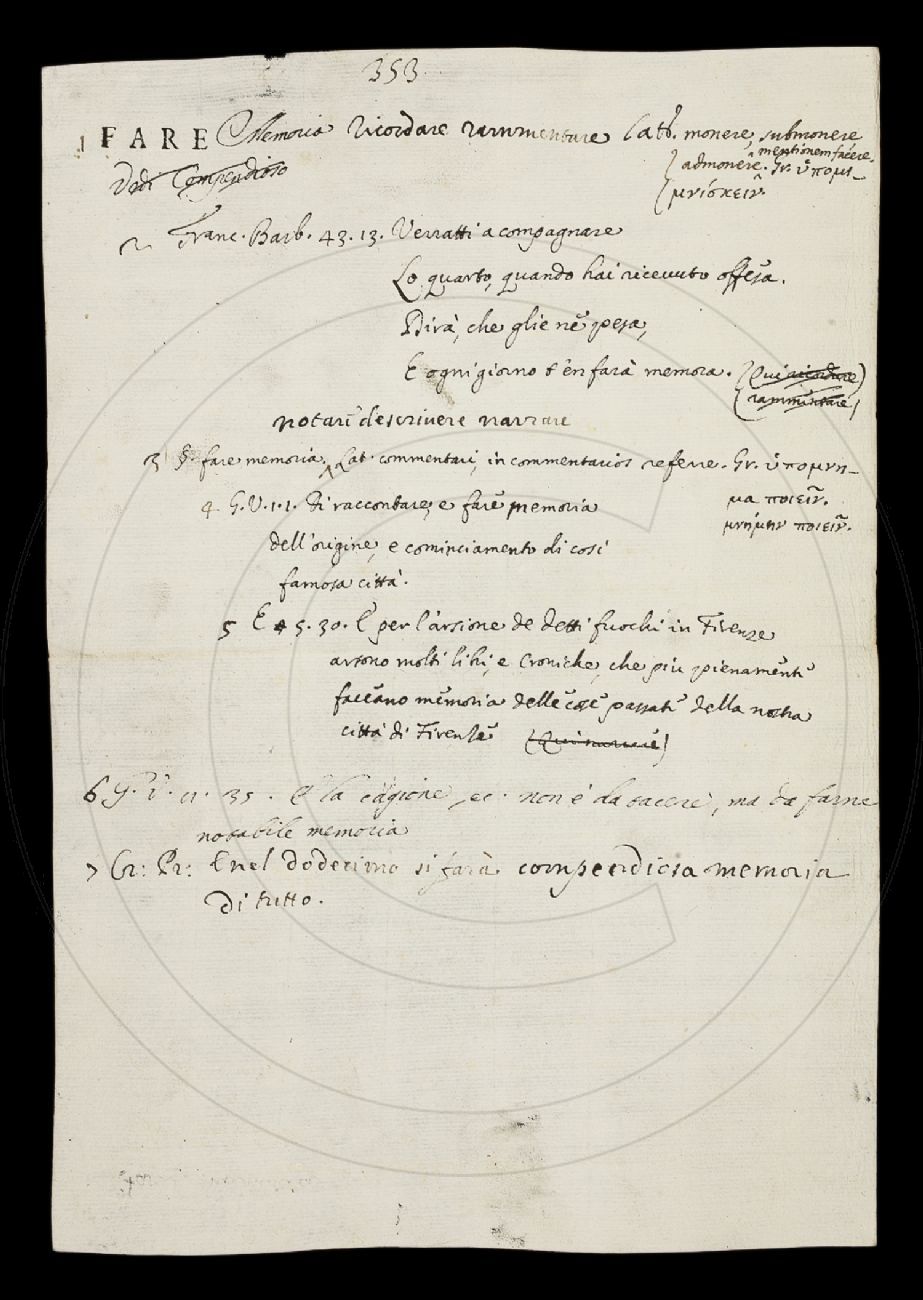 353
1 FARE Memoria Ricordare rammentare Latt. monere, submonere
mentionem facere.
admonere. Gr. ὑπομι-
μνίσκειν.
Vedi Compendioso
2 Franc. Barb. 43. 13. Verratti acompagnare
Lo quarto, quando hai ricevuto offesa.
Dirà, che glie ne pesa,
E ogni giorno t'en farà memora. (Qui ricordare)
(rammentare)
notare descrivere narrare
3 §. fare memoria. Lat. commentari, in commentarios referre. Gr. ὑπομνη-
μα ποιεῖν.
μνήμην ποιεῖν.
4 G. V. 1. 1. di raccontare, e fare memoria
dell'origine, e cominciamento di così
famosa città.
5 E 4 5. 30. E per l'arsione de detti fuochi in Firenze
arsono molti libri, e Croniche, che più pienamente
faceano memoria delle cose passate della nostra
città di Firenze (Qui narrare)
6 G. V. 11. 35. E la cagione, ec. non è da tacere, ma da farne
notabile memoria
7 Cr: Pr: E nel dodecimo si farà compendiosa memoria
di tutto.